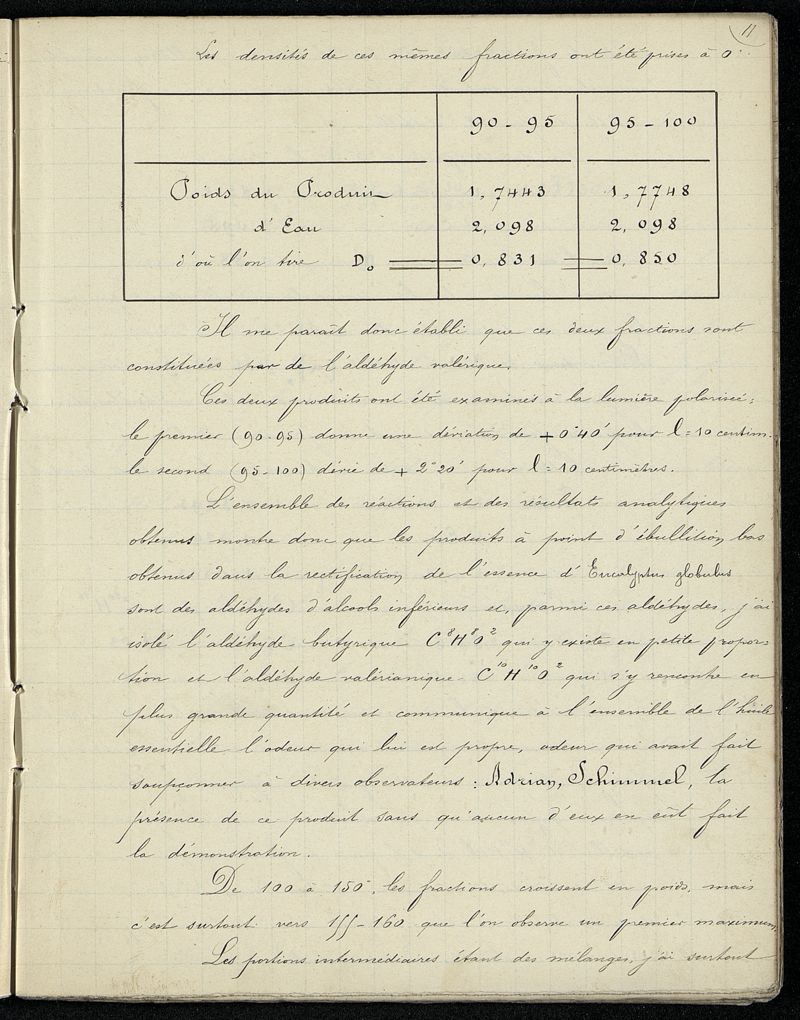 11
Les densités de ces mêmes fractions ont été prises à 0°.
90-95 95-100
Poids du Produit 1,7443 1,7748
d'Eau 2,098 2,098
d'où l'on tire D₀ = 0,831 = 0,850
Il me paraît donc établi que ces deux fractions sont
constituées par de l'aldéhyde valérique.
Ces deux produits ont été examinés à la lumière polarisée:
le premier (90-95) donne une déviation de +0°40' pour l=10 centim.
le second (95-100) dévie de +2°20' pour l=10 centimètres.
L'ensemble des réactions et des résultats analytiques
obtenus montre donc que les produits à point d'ébullition bas
obtenus dans la rectification de l'essence d'Eucalyptus globulus
sont des aldéhydes d'alcools inférieurs et, parmi ces aldéhydes, j'ai
isolé l'aldéhyde butyrique C⁸H⁸O² qui y existe en petite propor-
tion et l'aldéhyde valérianique C¹⁰H¹⁰O² qui s'y rencontre en
plus grande quantité et communique à l'ensemble de l'huile
essentielle l'odeur qui lui est propre, odeur qui avait fait
soupçonner à divers observateurs: Adrian, Schimmel, la
présence de ce produit sans qu'aucun d'eux en eût fait
la démonstration.
De 100 à 150°, les fractions croissent en poids, mais
c'est surtout vers 155-160 que l'on observe un premier maximum.
Les portions intermédiaires étant des mélanges, j'ai surtout